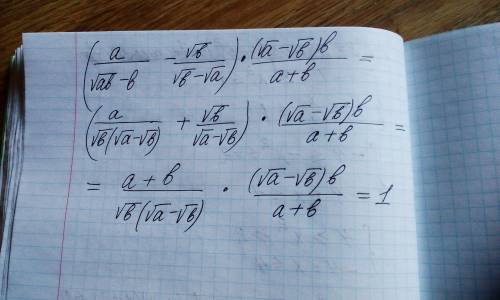 (a/(√ab - b) - √b/(√b - √a)) · (√a - √b)b/(a + b) =
(a/(√b(√a - √b)) + √b/(√a - √b)) · (√a - √b)b/(a + b) =
= (a + b)/(√b(√a - √b)) · (√a - √b)b/(a + b) = 1